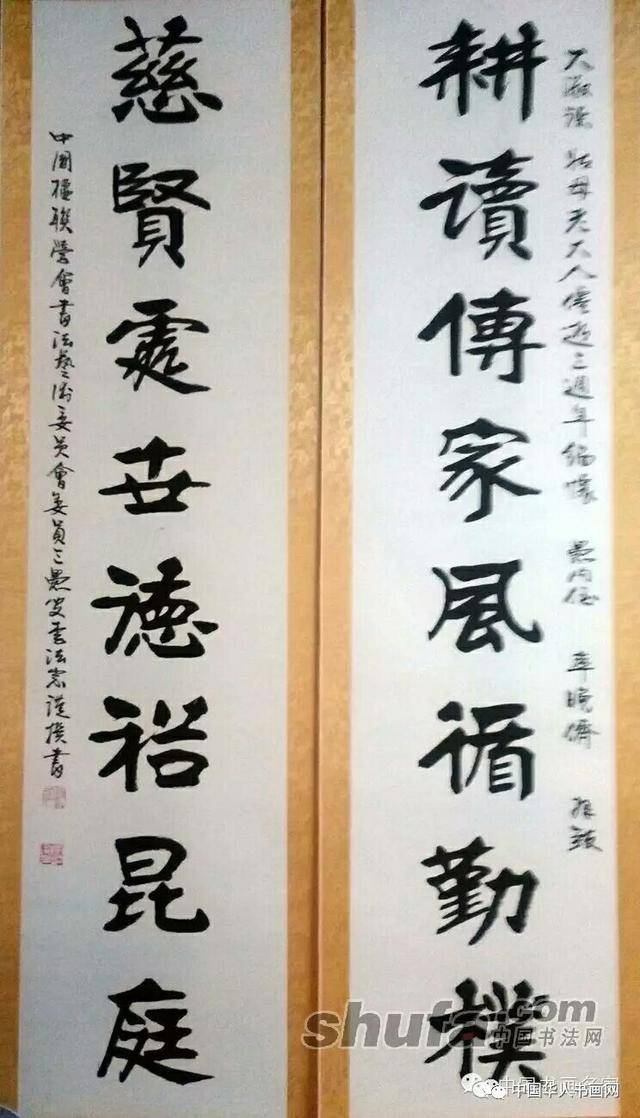 姑母老大人僊逝三週年緬懷 愚內侄 率曉儕
耕讀傳家風循勤樸
慈賢處世德裕昆庭
中國楹聯學會書法藝術委員會委員三愚叟 法 謹撰書
shufa.com
中国书法网
中国华人书画网